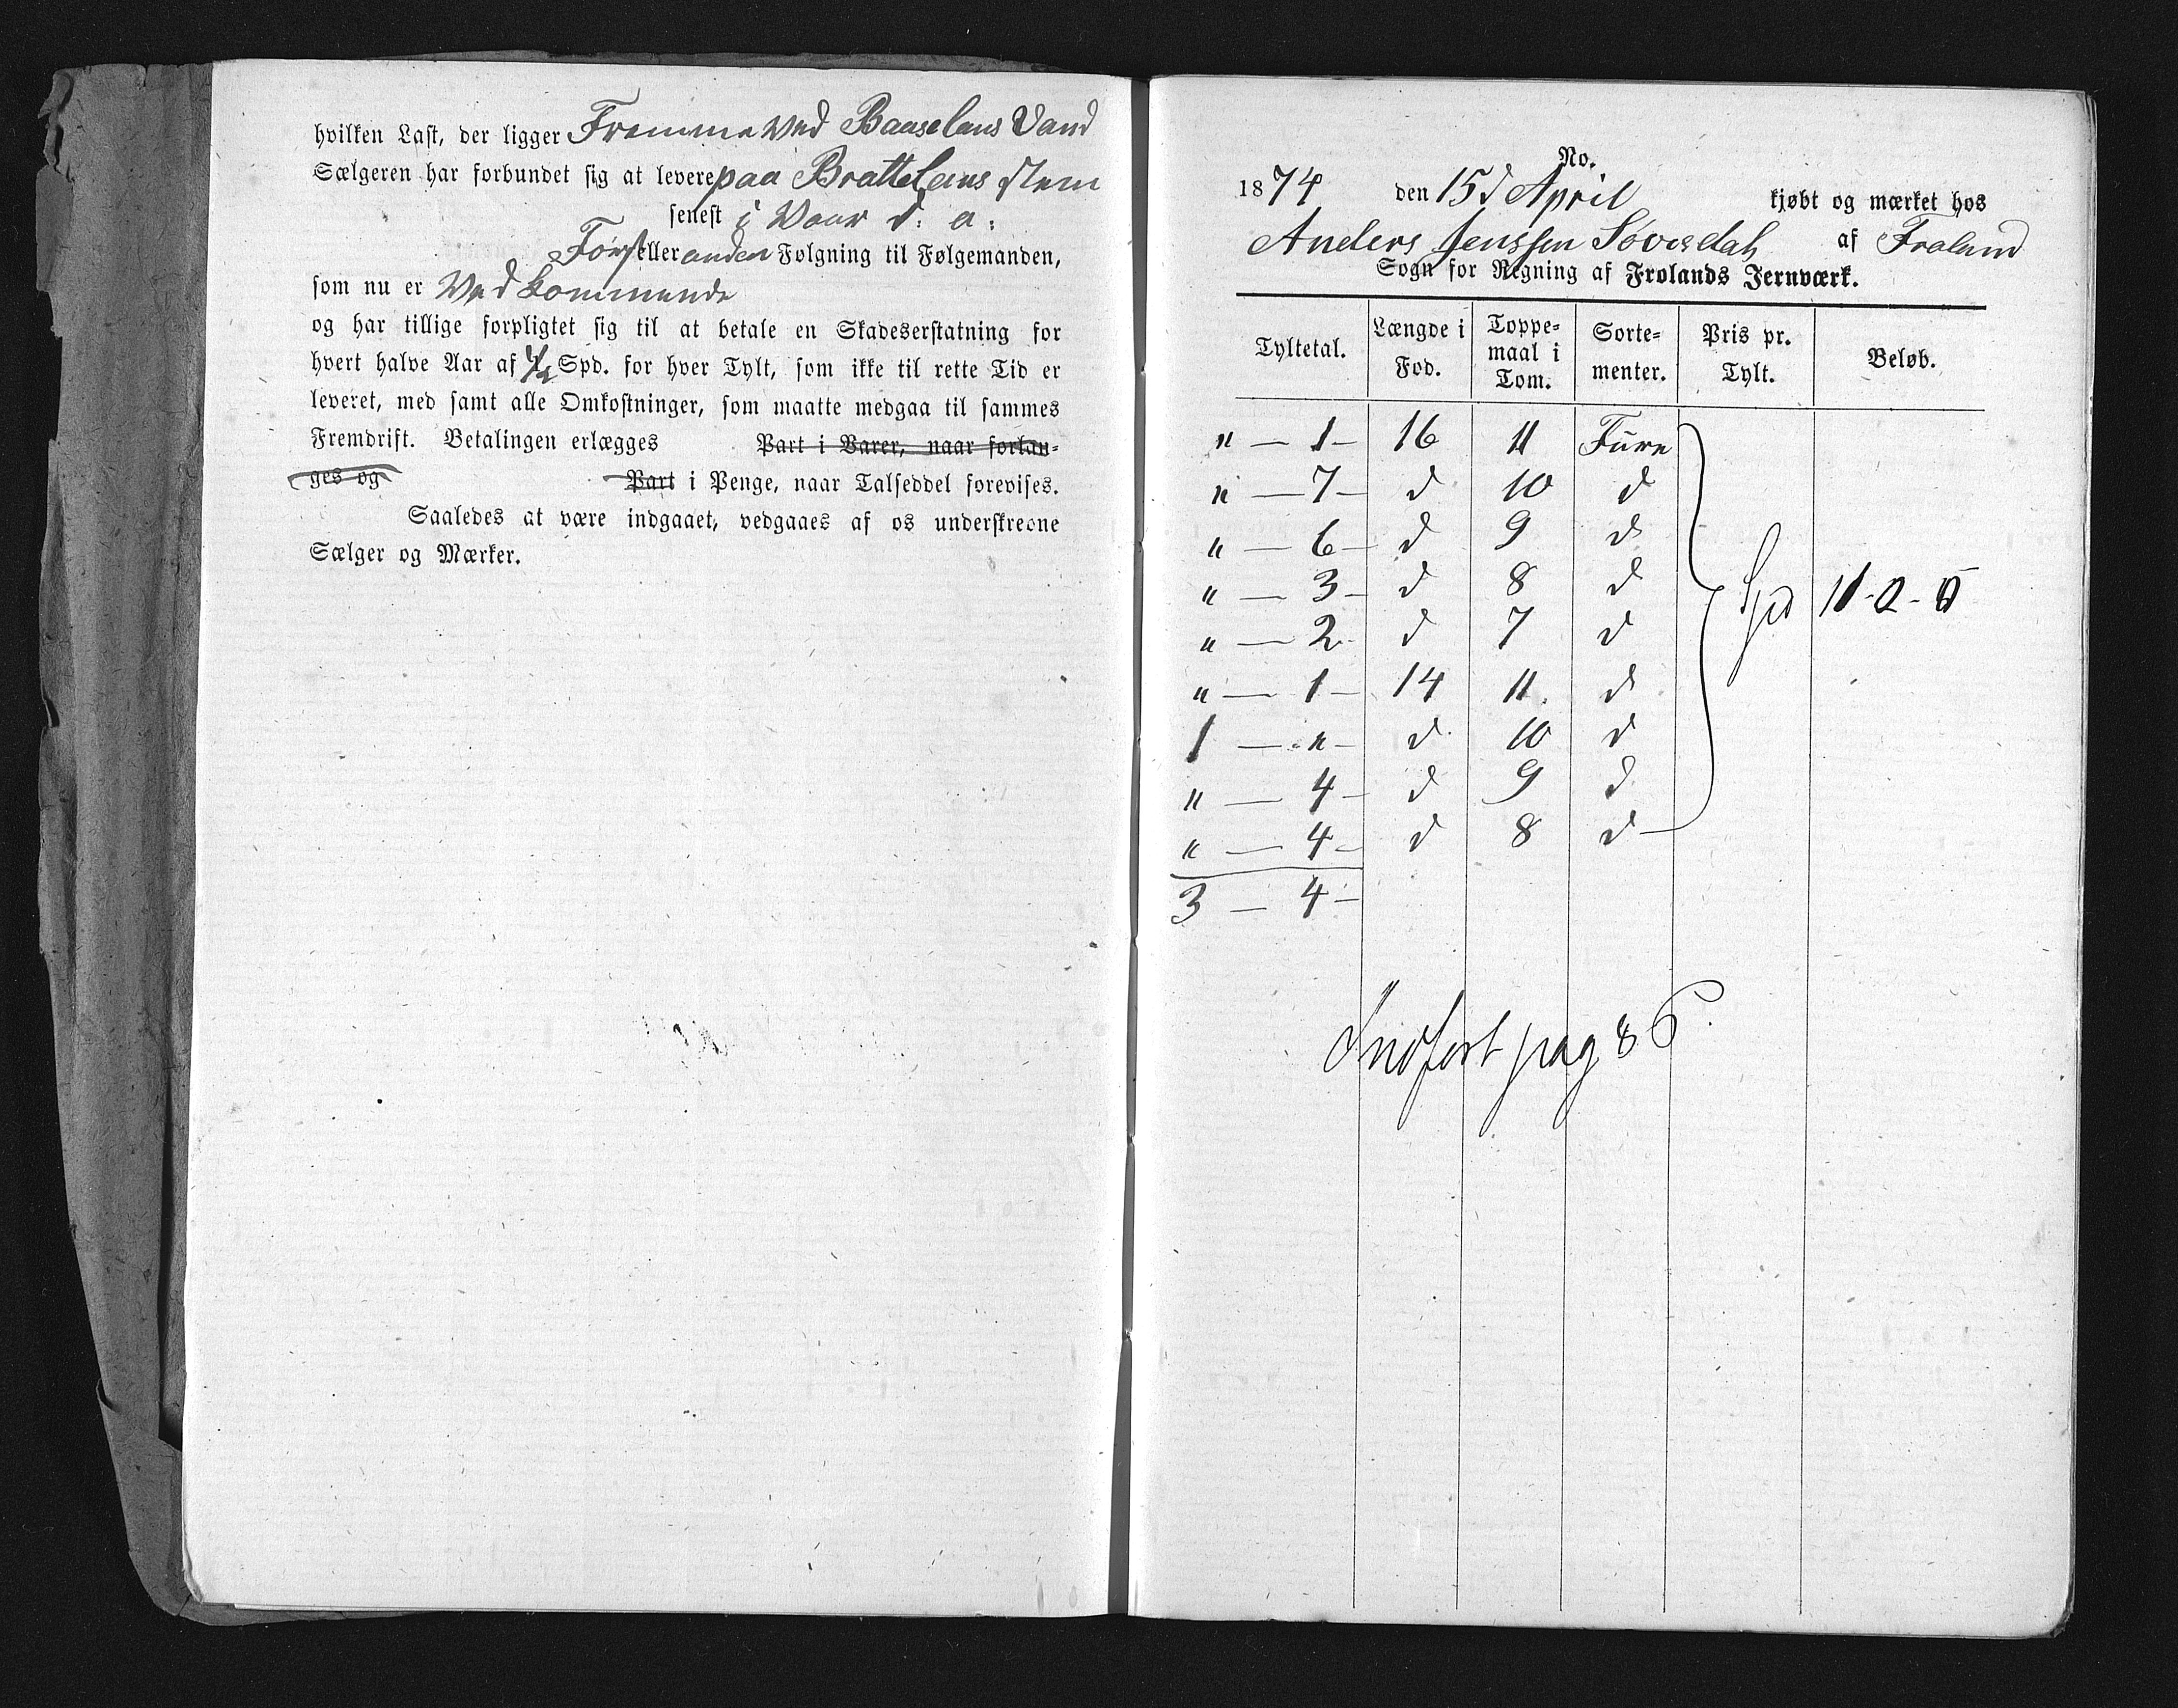 hvilken Last, der ligger Fremme ved Baaselans Vand
Sælgeren har forbundet sig at levere paa Brattelans Stem
senest i Vaar d. a.
Først eller anden Følgning til Følgemanden,
som nu er Vedkommende
og har tillige forpligtet sig til at betale en Skadeserstatning for
hvert halve Aar af 1/2 Spd. for hver Tylt, som ikke til rette Tid er
leveret, med samt alle Omkostninger, som maatte medgaa til sammes
Fremdrift. Betalingen erlægges Part i Varer, naar forlan-
ges og Part i Penge, naar Talseddel forevises.
Saaledes at være indgaaet, vedgaaes af os underskrevne
Sælger og Mærker.
No.
1874 den 15d April kjøbt og mærket hos
Anders Jenssen af Froland
Sogn for Regning af Frolands Jernværk.
Tyltetal. Længde i Fod. Toppe-maal i Tom. Sorte-menter. Pris pr. Tylt. Beløb.
" — 1 — 16 11 Furu
" — 7 — d 10 d
" — 6 — d 9 d
" — 3 — d 8 d
Spd 11-0-0
" — 2 — d 7 d
" — 1 — 14 11 d
1 — " — d 10 d
" — 4 — d 9 d
" — 4 — d 8 d
3 — 4 —
Indført pag 86.